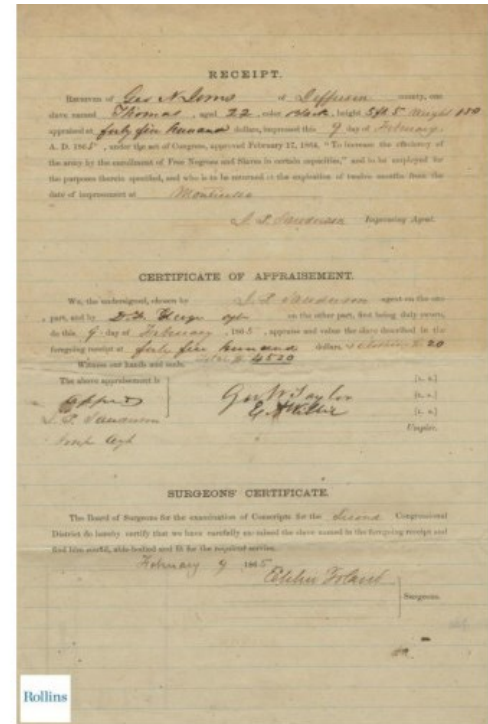 RECEIPT.
RECEIVED of Geo N of Jefferson county, one
slave named Thomas, aged 22 color black, height 5 ft 5 Weight 150
appraised at forty five hundred dollars, impressed this 9 day of February
A. D. 1865, under the act of Congress, approved February 17, 1864, "To increase the efficiency of
the army by the employment of Free Negroes and Slaves in certain capacities," and to be employed for
the purposes therein specified, and who is to be returned at the expiration of twelve months from the
date of impressment at Monticello
Impressing Agent.
CERTIFICATE OF APPRAISEMENT.
We, the undersigned, chosen by agent on the one
part, and by on the other part, first being duly sworn,
do this 9 day of February, 1865, appraise and value the slave described in the
foregoing receipt at forty five hundred dollars & clothing $ 20
Witness our hands and seals. 4520
The above appraisement is
Geo W Taylor [L. S.]
[L. S.]
[L. S.]
Umpire.
SURGEONS' CERTIFICATE.
The Board of Surgeons for the examination of Conscripts for the Second Congressional
District do hereby certify that we have carefully examined the slave named in the foregoing receipt and
find him sound, able-bodied and fit for the required service.
February 9 1865
Surgeons.
Rollins